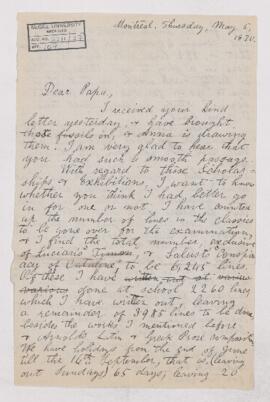 McGILL UNIVERSITY
ARCHIVES
ACC. NO.
REF.
Montreal, Thursday, May 5,
1870.
Dear Papa,
I received your kind
letter yesterday, & have brought
those fossils on, & Anna is drawing
them. I am very glad to hear that
you had such a smooth passage.
With regard to those Scholar-
ships & Exhibitions, I want to know
whether you think I had better go
in for one or not. I have counted
up the number of lines in the classics
to be gone over for the examination,
& I find the total number, exclusive
of Lucian's & Sallust's Conspir-
acy of Catiline to be 6,245 lines.
Of these I have written out at
various done at school 2260 lines
which I have written out, leaving
a remainder of 3985 lines to be done
besides the works I mentioned before
& Arnold's Latin & Greek Prose Composition
We have holidays from the end of June
till the 16th September, that is (leaving
out Sundays) 65 days; leaving 20